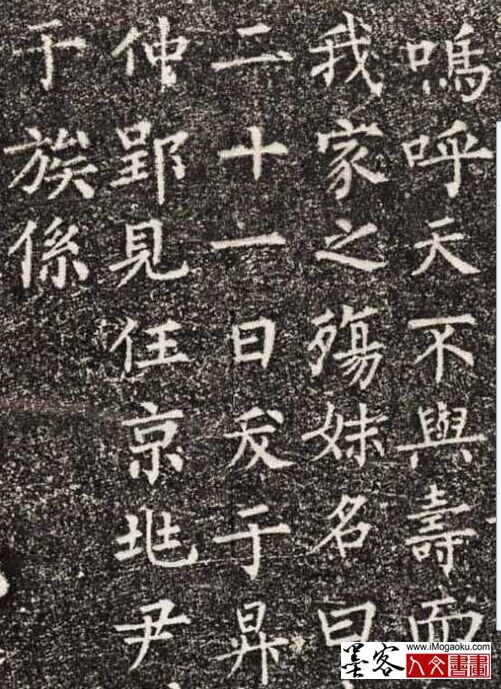 嗚呼天不與壽而
我家之殤妹名曰
二十一日于昇
仲郢見任京兆尹
于族係
墨客
www.iMogaoku.com
人文書畫